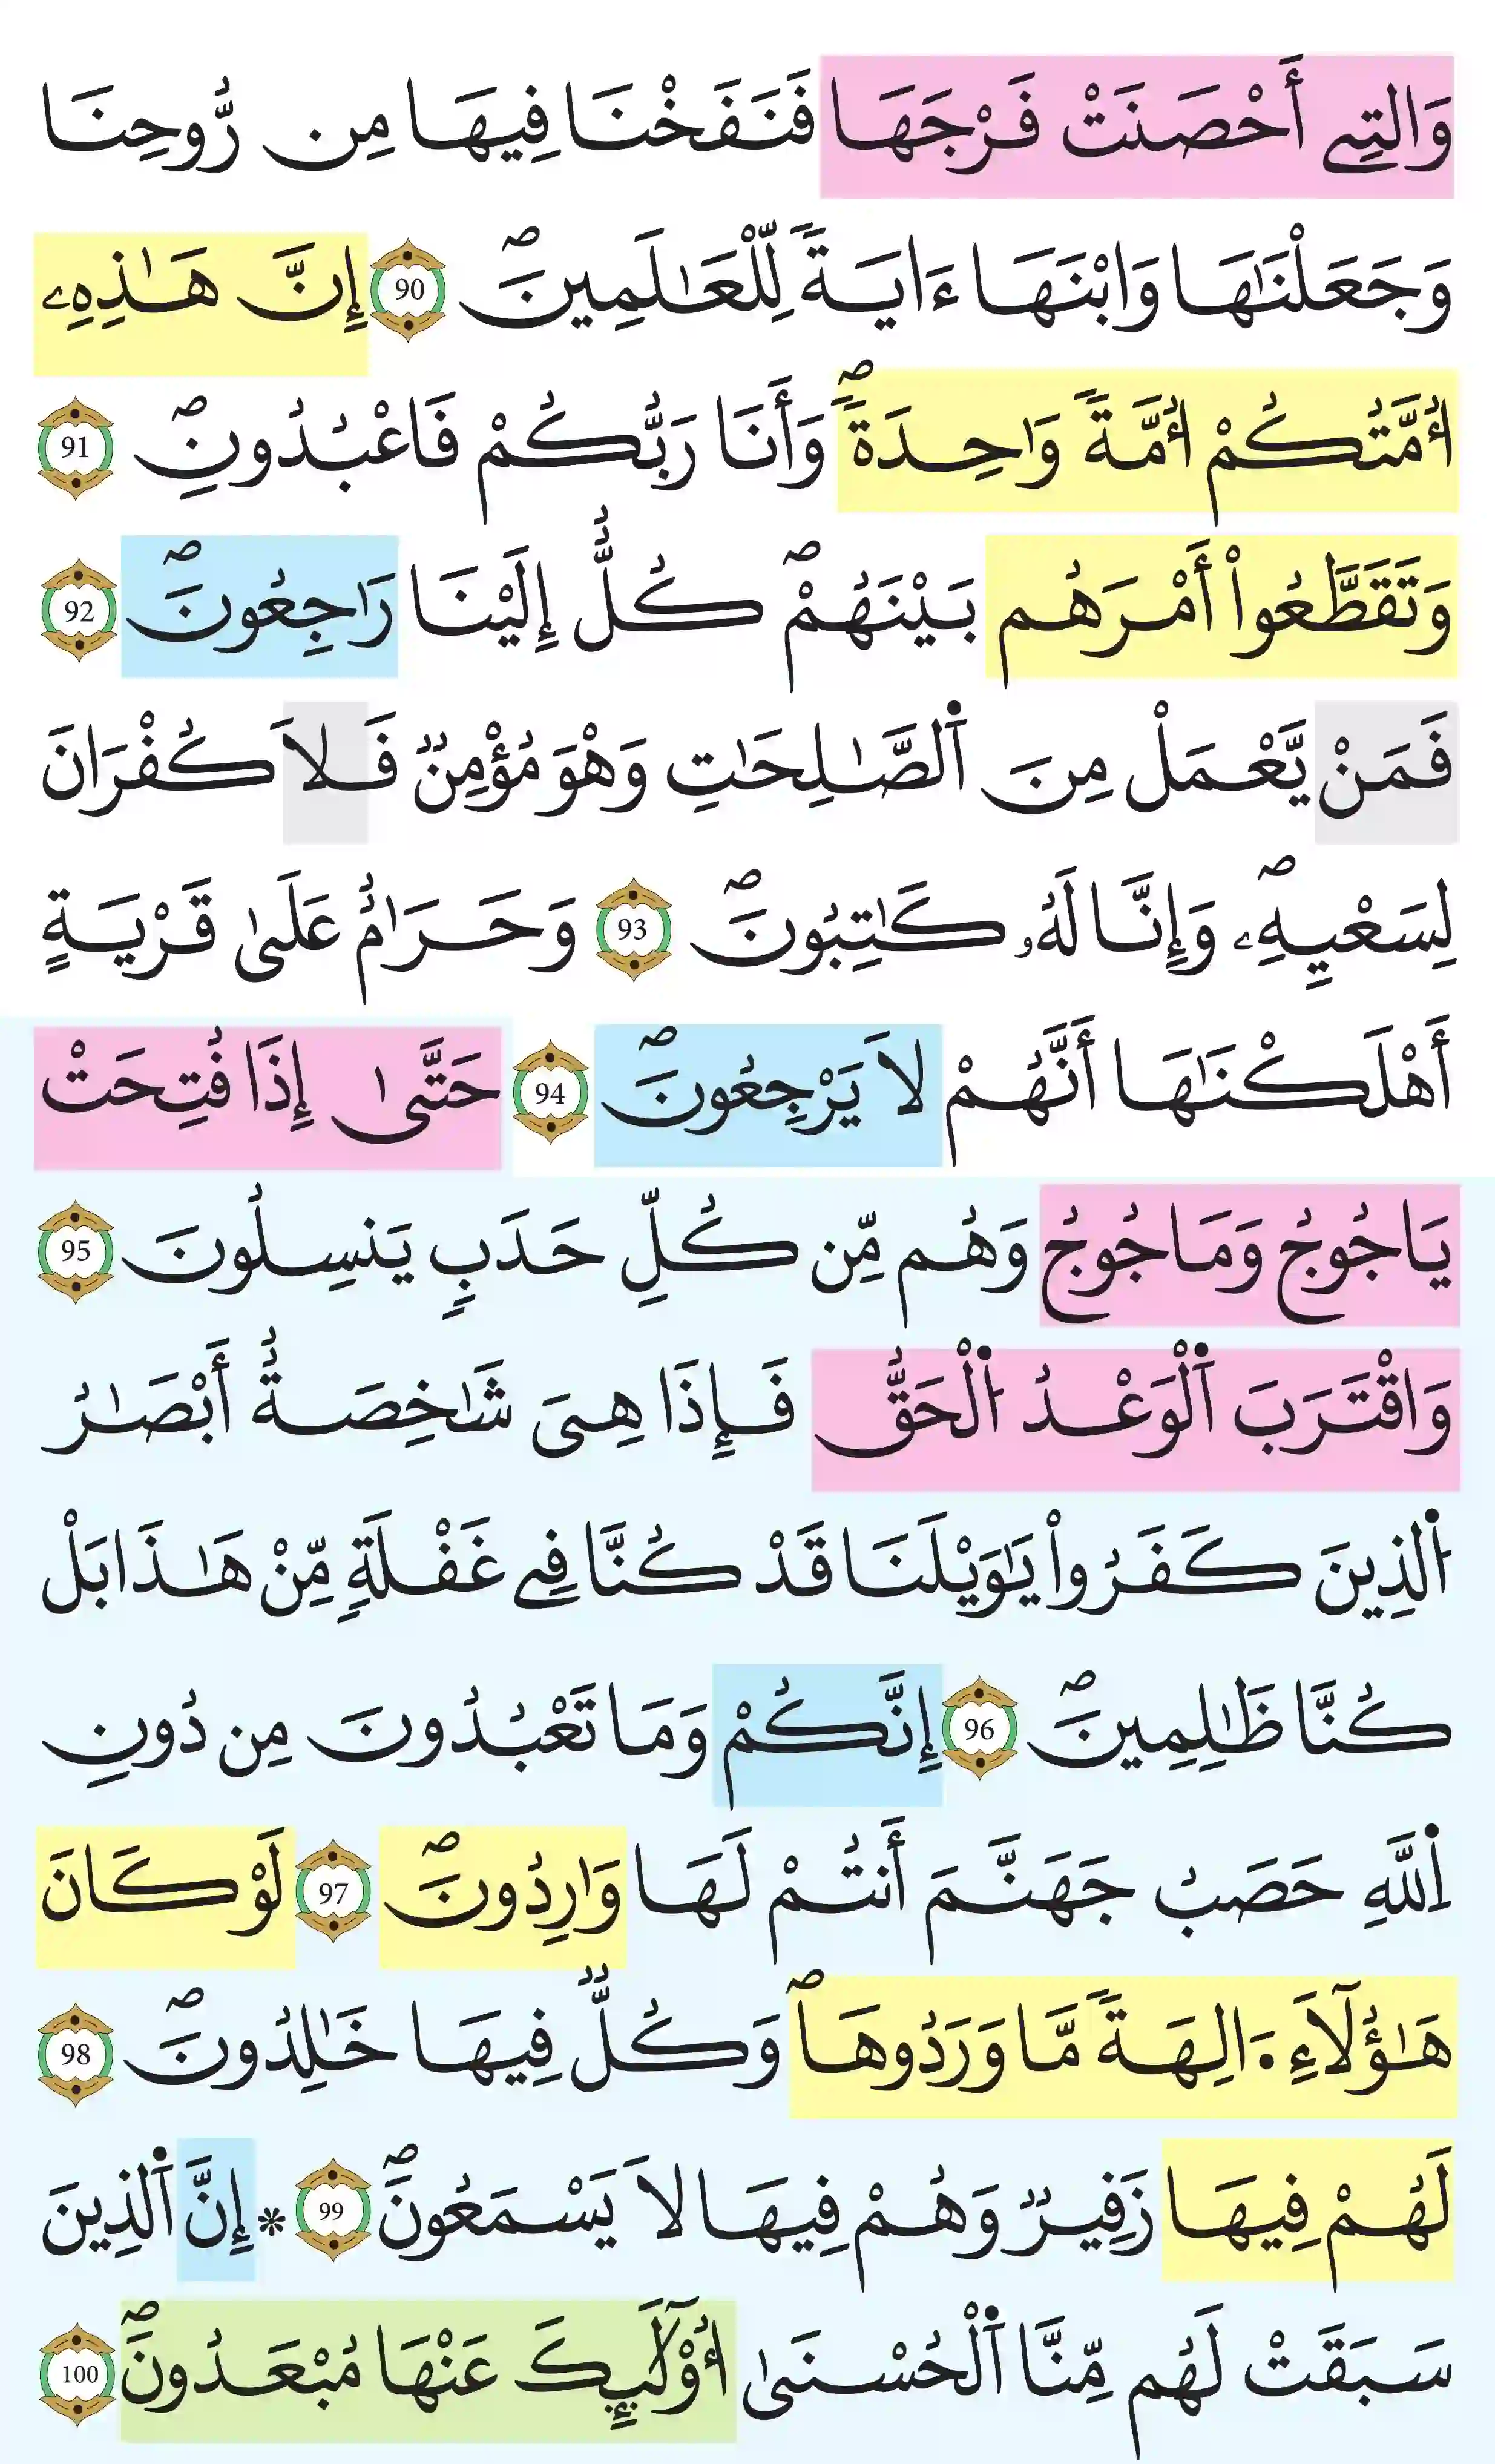 وَالتِے أَحْصَنَتْ فَرْجَهَا فَنَفَخْنَا فِيهَا مِن رُّوحِنَا
وَجَعَلْنَٰهَا وَابْنَهَا ءَايَةٗ لِّلْعَٰلَمِينَۖ 90 إِنَّ هَٰذِهِۦ
أُمَّتُكُمْ أُمَّةٗ وَٰحِدَةٗۖ وَأَنَا رَبُّكُمْ فَاعْبُدُونِۖ 91
وَتَقَطَّعُواْ أَمْرَهُم بَيْنَهُمْۖ كُلٌّ إِلَيْنَا رَٰجِعُونَۖ 92
فَمَنْ يَّعْمَلْ مِنَ اَ۬لصَّٰلِحَٰتِ وَهْوَ مُؤْمِنٞ فَلَا كُفْرَانَ
لِسَعْيِهِۦۖ وَإِنَّا لَهُۥ كَٰتِبُونَۖ 93 وَحَرَٰمٌ عَلَىٰ قَرْيَةٍ
أَهْلَكْنَٰهَا أَنَّهُمْ لَا يَرْجِعُونَۖ 94 حَتَّىٰ إِذَا فُتِحَتْ
يَاجُوجُ وَمَاجُوجُ وَهُم مِّن كُلِّ حَدَبٍ يَنسِلُونَ 95
وَاقْتَرَبَ اَ۬لْوَعْدُ اُ۬لْحَقُّ فَإِذَا هِىَ شَٰخِصَةٌ أَبْصَٰرُ
اُ۬لذِينَ كَفَرُواْ يَٰوَيْلَنَا قَدْ كُنَّا فِے غَفْلَةٍ مِّنْ هَٰذَا بَلْ
كُنَّا ظَٰلِمِينَۖ 96 إِنَّكُمْ وَمَا تَعْبُدُونَ مِن دُونِ
اِ۬للَّهِ حَصَبُ جَهَنَّمَ أَنتُمْ لَهَا وَٰرِدُونَۖ 97 لَوْ كَانَ
هَٰؤُلَآءِ ا۬لِهَةٗ مَّا وَرَدُوهَاۖ وَكُلّٞ فِيهَا خَٰلِدُونَۖ 98
لَهُمْ فِيهَا زَفِيرٞ وَهُمْ فِيهَا لَا يَسْمَعُونَۖ 99 * إِنَّ اَ۬لذِينَ
سَبَقَتْ لَهُم مِّنَّا اَ۬لْحُسْنَىٰ أُوْلَٰٓئِكَ عَنْهَا مُبْعَدُونَۖ 100